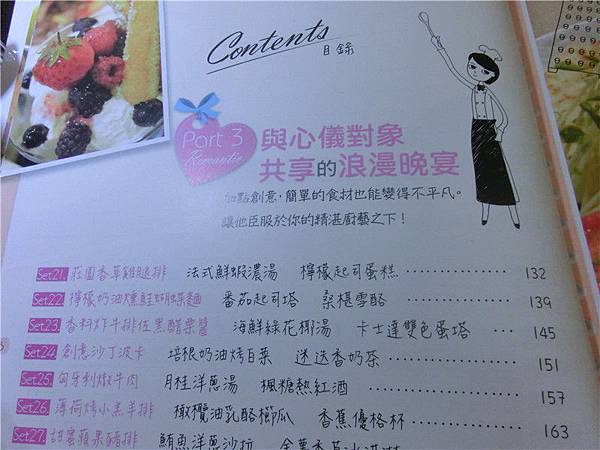 Contents
目錄
Part 3
Romantic
與心儀對象
共享的浪漫晚宴
加點創意,簡單的食材也能變得不平凡。
讓他臣服於你的精湛廚藝之下!
Set21. 莊園香草雞腿排 法式鮮蝦濃湯 檸檬起司蛋糕 132
Set22. 檸檬奶油燻鮭蝴蝶麵 番茄起司塔 桑椹雪酪 139
Set23. 香料炸牛排佐黑醋栗醬 海鮮綠花椰湯 卡士達雙色蛋塔 145
Set24. 創意沙丁波卡 培根奶油烤白菜 迷迭香奶茶 151
Set25. 匈牙利燉牛肉 月桂洋蔥湯 楓糖熱紅酒 157
Set26. 薄荷烤小羔羊排 橄欖油乳酪櫛瓜 香蕉優格杯 163
Set27. 甜蜜蘋果豬排 鮪魚洋蔥沙拉